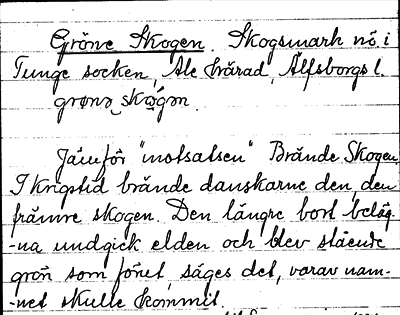 Gröne Skogen. Skogsmark nö i
Tunge socken, Ale härad, Älfsborgs l.
grønə skógən.
Jämför "motsatsen" Brände Skogen
I krigstid brände danskarne den, den
främre skogen. Den längre bort beläg-
-na undgick elden och blev stående
grön som förut, säges det, varav nam-
-net skulle kommit.